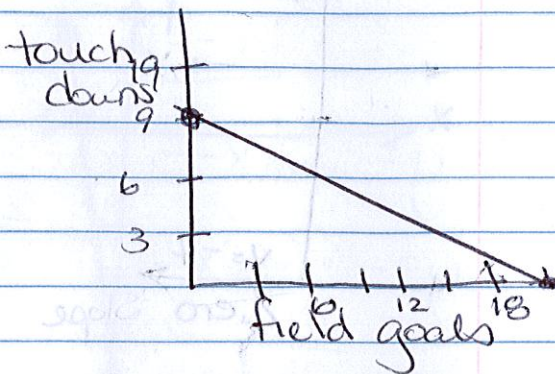 touch 19
downs
9
6
3
6 12 18
field goals